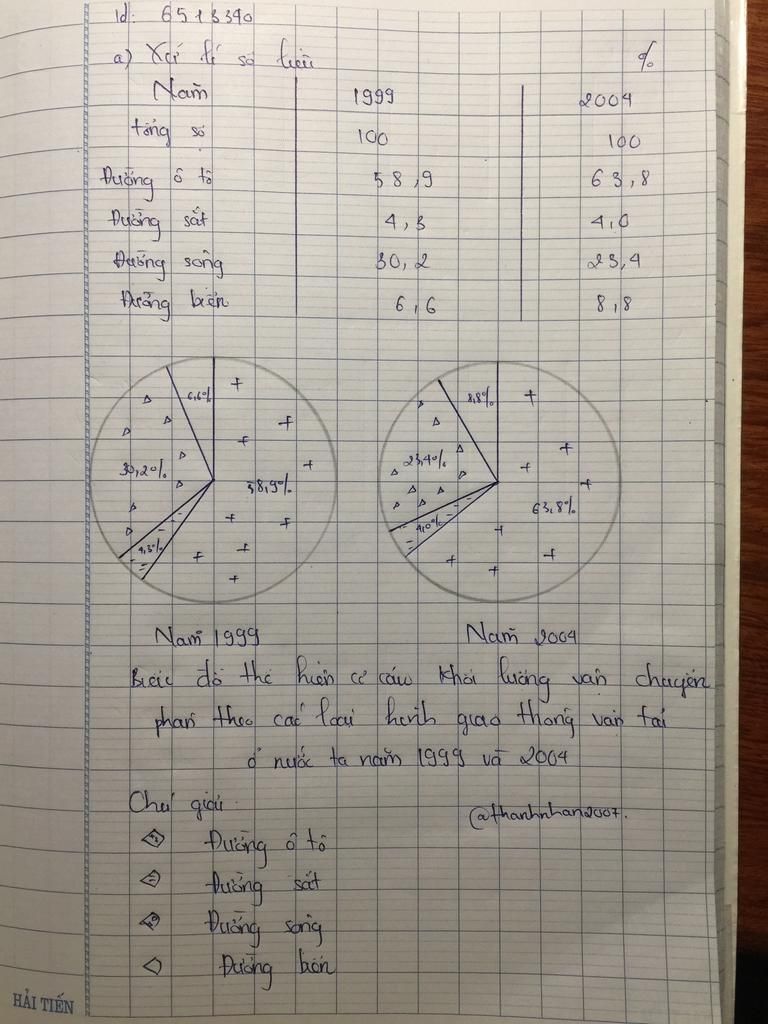 Id: 6513390
a) Xử lí số liệu %
Năm 1999 2004
tổng số 100 100
Đường ô tô 58,9 63,8
Đường sắt 4,3 4,0
Đường sông 30,2 23,4
Đường biển 6,6 8,8
6,6% 8,8%
30,2% 58,9% 23,4% 63,8%
4,3% 4,0%
Năm 1999 Năm 2004
Biểu đồ thể hiện cơ cấu khối lượng vận chuyển
phân theo các loại hình giao thông vận tải
ở nước ta năm 1999 và 2004
Chú giải:
@thanhnhan2007.
Đường ô tô
Đường sắt
Đường sông
Đường biển
HẢI TIẾN